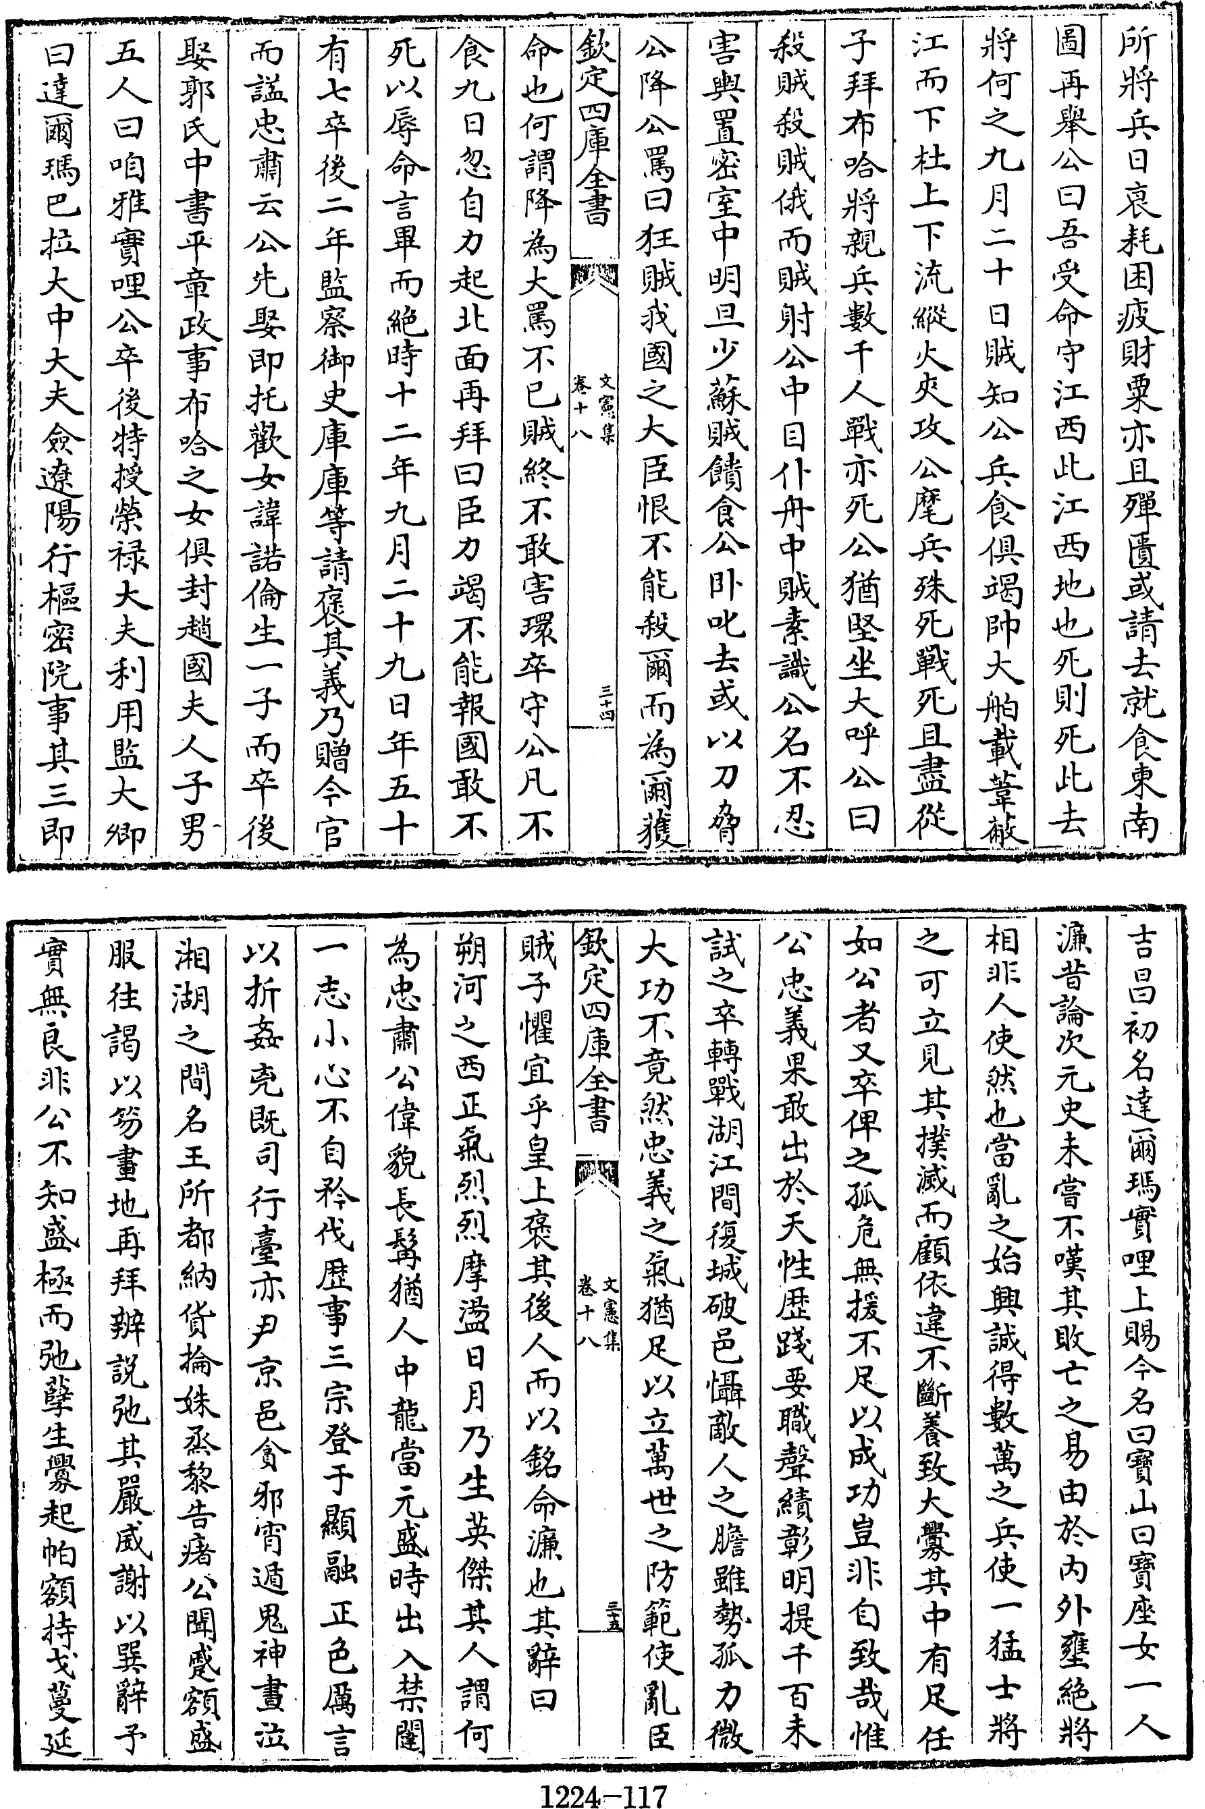 所將兵日衰耗困疲財粟亦且殫匱或請去就食東南
圖再舉公曰吾受命守江西此江西地也死則死此去
將何之九月二十日賊知公兵食俱竭帥大舶載葦蔽
江而下杜上下流縱火夾攻公麾兵殊死戰死且盡從
子拜布哈將親兵數千人戰亦死公猶堅坐大呼公曰
殺賊殺賊俄而賊射公中目仆舟中賊素識公名不忍
害輿置密室中明旦少蘇賊饋食公卧叱去或以刀脅
公降公罵曰狂賊我國之大臣恨不能殺爾而為爾獲
欽定四庫全書
文憲集
卷十八
三十四
命也何謂降為大罵不已賊終不敢害環卒守公凡不
食九日忽自力起北面再拜曰臣力竭不能報國敢不
死以辱命言畢而絶時十二年九月二十九日年五十
有七卒後二年監察御史庫庫等請褒其義乃贈今官
而諡忠肅云公先娶即托歡女諱諾倫生一子而卒後
娶郭氏中書平章政事布哈之女俱封趙國夫人子男
五人曰咱雅實哩公卒後特授榮禄大夫利用監大卿
曰達爾瑪巴拉大中大夫僉遼陽行樞密院事其三即
吉昌初名達爾瑪實哩上賜今名曰寶山曰寶座女一人
濂昔論次元史未嘗不嘆其敗亡之易由於内外壅絶將
相非人使然也當亂之始興誠得數萬之兵使一猛士將
之可立見其撲滅而顧依違不斷養致大釁其中有足任
如公者又卒俾之孤危無援不足以成功豈非自致哉惟
公忠義果敢出於天性歴踐要職聲績彰明提千百未
試之卒轉戰湖江間復城破邑懾敵人之膽雖勢孤力微
大功不竟然忠義之氣猶足以立萬世之防範使亂臣
欽定四庫全書
文憲集
卷十八
三十五
賊子懼宜乎皇上褒其後人而以銘命濂也其辭曰
朔河之西正氣烈烈摩盪日月乃生英傑其人謂何
為忠肅公偉貌長髯猶人中龍當元盛時出入禁闥
一志小心不自矜伐歴事三宗登于顯融正色厲言
以折姦兇既司行臺亦尹京邑貪邪宵遁鬼神晝泣
湘湖之間名王所都納貨掄姝烝黎告瘏公聞蹙額盛
服往謁以笏畫地再拜辨説弛其嚴威謝以巽辭予
實無良非公不知盛極而弛孽生釁起帕額持戈蔓延
1224-117